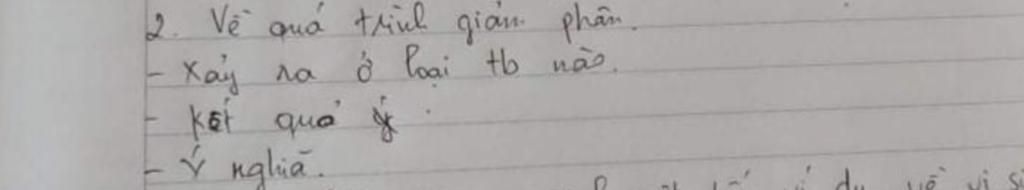 2. Về quá trình gián phân.
- Xảy ra ở loại tb nào.
- Kết quả ý
- Ý nghĩa.
dụ về vi